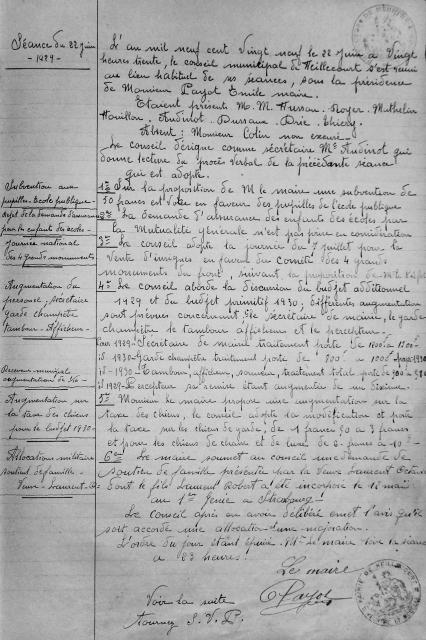 Séance du 22 juin
1929
L'an mil neuf cent vingt neuf le 22 juin à vingt
heures trente, le conseil municipal de Heillecourt s'est réuni
au lieu habituel de ses séances, sous la présidence
de Monsieur Payot Emile maire.
Etaient présent M.M. Hussau Royer Mathelin
Houillon Audinot Dussaux Thiery
Monsieur Colin non excusé
Le conseil désigne comme secrétaire Mr Audinot qui
donne lecture du procès verbal de la précédente séance
qui est adopté.
Subvention aux
pupilles école publique
Rejet de la demande d'aumance
pour les enfants des écoles
Journée national
des 4 grands monuments
1º Sur la proposition de M le maire une subvention de
50 francs est votée en faveur des pupilles de l'école publique
2º La demande d'almance des enfants des écoles par
la Mutualité générale n'est pas prise en considération
3º Le conseil adopte la journée du 7 juillet pour la
vente d'insignes en faveur du comité des 4 grands
monuments du front, suivant la proposition de Mr le
Augmentation du
personnel, secrétaire
garde champêtre
Tambour-Afficheur
4º Le conseil aborde la discussion du budget additionnel
1929 et du budget primitif 1930; différentes augmentation
sont prévues concernant le secrétaire de mairie, le garde
champêtre le tambour afficheur et le percepteur.
1929 Secrétaire de mairie traitement porté de 1200 à 1500
1930 Garde champêtre traitement porté de 900 à 1000
1930 Tambour, afficheur, sonneur, traitement total porté de
1929 Percepteur sa remise étant augmentée de un dixième.
Receveur municipal
augmentation de
Augmentation sur
la taxe des chiens
pour le budget 1930
5º Monsieur le maire propose une augmentation sur la
taxe des chiens, le conseil adopte la modification et porte
la taxe sur les chiens de garde, de 1 franc 50 à 3 francs
et pour les chiens de chasse et de luxe de 8 francs à 10
Allocations militaire
soutient de famille
Veuve Laurent
6º Le maire soumet au conseil une demande de
soutien de famille présentée par la Veuve Laurent
dont le fils Laurent Robert a été incorporé le 12 mai
au 1er Génie à Strasbourg!
Le conseil après en avoir délibéré émet l'avis qu'il
soit accordé une allocation d'une majoration.
L'ordre du jour étant épuisé Mr le maire lève la séance
à 23 heures.
Le maire
Payot
Voir la suite
tournez S.V.P.